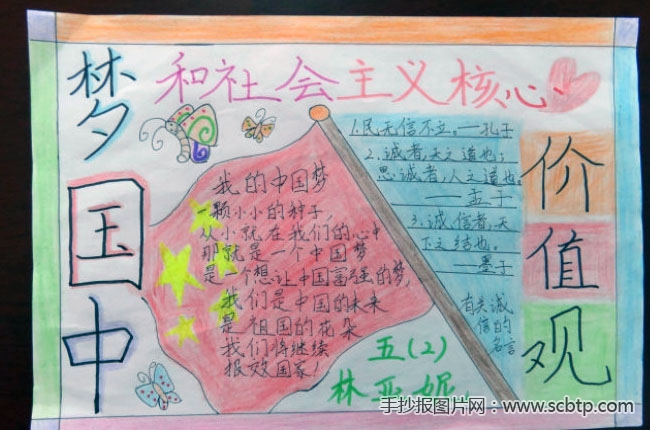 中国梦
和社会主义核心
价值观
我的中国梦
一颗小小的种子,
从小就在我们的心中
那就是一个中国梦
是一个想让中国富强的梦,
我们是中国的未来
是祖国的花朵
我们将继续
报效国家!
1.民无信不立。——孔子
2.诚者,天之道也;
思诚者,人之道也。
——孟子
3.诚信者,天
下之结也。
——墨子
有关诚
信的
名言
五(2)
林亚妮
手抄报图片网:www.scbtp.com